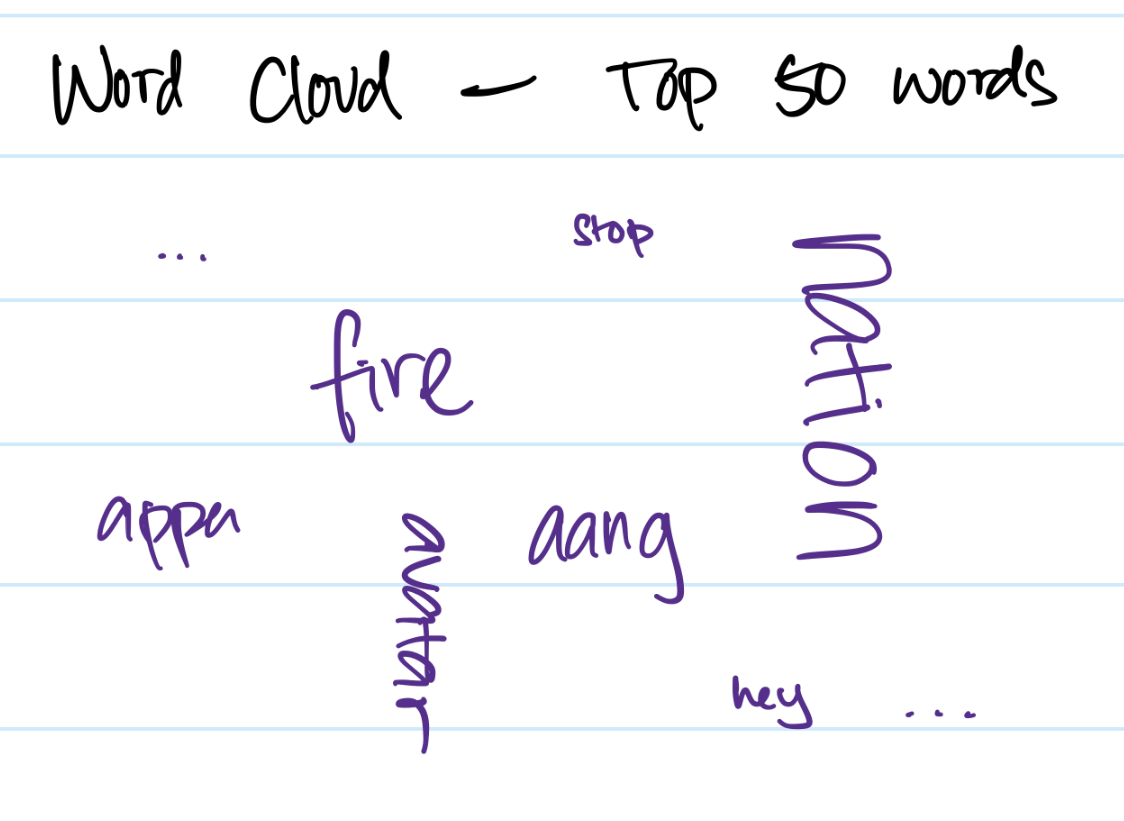 Word Cloud — Top 50 words
...
stop
nation
fire
appa
avatar
aang
hey ...